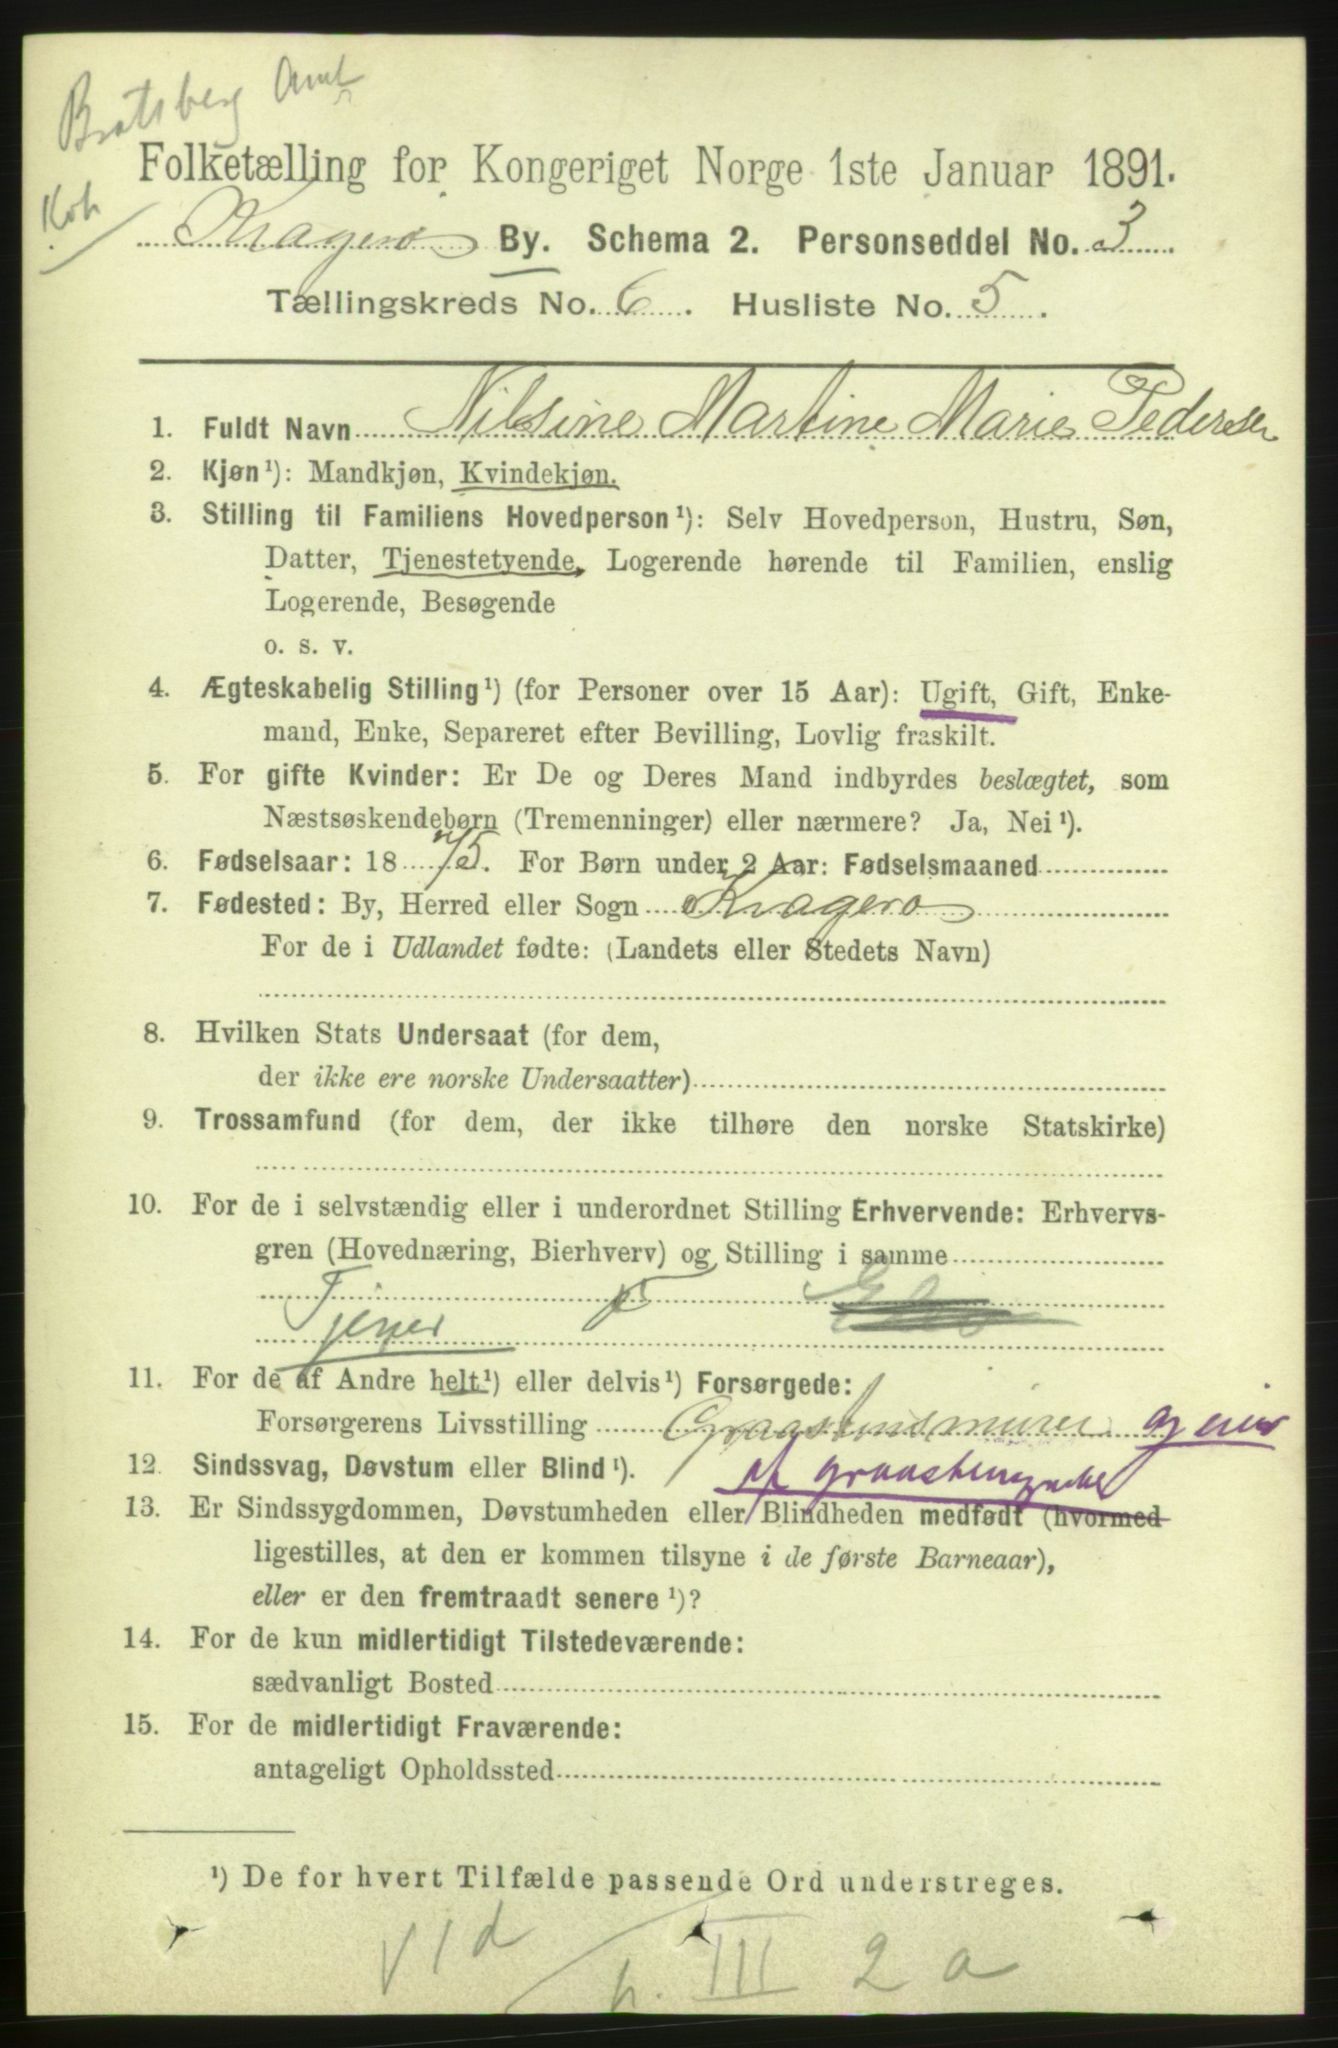 Bratsberg Amt
Folketælling for Kongeriget Norge 1ste Januar 1891.
Kragerø By. Schema 2. Personseddel No. 3
Tællingskreds No. 6. Husliste No. 5.
1. Fuldt Navn Nilsine Martine Marie Pedersen
2. Kjøn¹): Mandkjøn, Kvindekjøn.
3. Stilling til Familiens Hovedperson¹): Selv Hovedperson, Hustru, Søn,
Datter, Tjenestetyende, Logerende hørende til Familien, enslig
Logerende, Besøgende
o. s. v.
4. Ægteskabelig Stilling¹) (for Personer over 15 Aar): Ugift, Gift, Enke-
mand, Enke, Separeret efter Bevilling, Lovlig fraskilt.
5. For gifte Kvinder: Er De og Deres Mand indbyrdes beslægtet, som
Næstsøskendebørn (Tremenninger) eller nærmere? Ja, Nei¹).
6. Fødselsaar: 1875. For Børn under 2 Aar: Fødselsmaaned
7. Fødested: By, Herred eller Sogn Kragerø
For de i Udlandet fødte: (Landets eller Stedets Navn)
8. Hvilken Stats Undersaat (for dem,
der ikke ere norske Undersaatter)
9. Trossamfund (for dem, der ikke tilhøre den norske Statskirke)
10. For de i selvstændig eller i underordnet Stilling Erhvervende: Erhvervs-
gren (Hovednæring, Bierhverv) og Stilling i samme
Tjener
11. For de af Andre helt¹) eller delvis¹) Forsørgede:
Forsørgerens Livsstilling Graastensmurer og eier
af graastens
12. Sindssvag, Døvstum eller Blind¹).
13. Er Sindssygdommen, Døvstumheden eller Blindheden medfødt (hvormed
ligestilles, at den er kommen tilsyne i de første Barneaar),
eller er den fremtraadt senere¹)?
14. For de kun midlertidigt Tilstedeværende:
sædvanligt Bosted
15. For de midlertidigt Fraværende:
antageligt Opholdssted
¹) De for hvert Tilfælde passende Ord understreges.
VId h. III 2 a